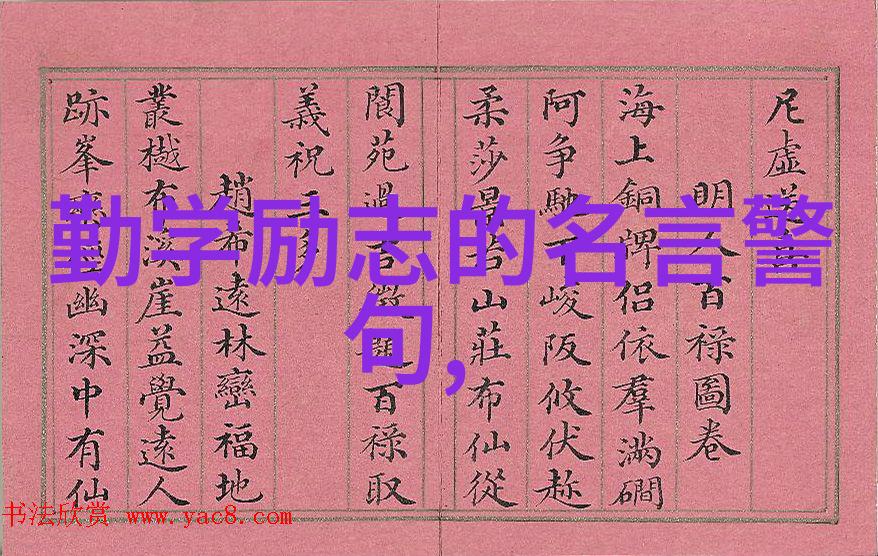 勤学励志的名言警
句,
虛送
明人百祿圖卷
海上銅牌侶依羣滿磵
阿争馳下峻阪攸伏
柔莎山莊布仙從
閬苑過百百祿取
義祝三多
趙布遠林巒福地
叢樾布溪崖益覺遠人
跡峯幽深中有仙
书法欣赏 www.yac8.com